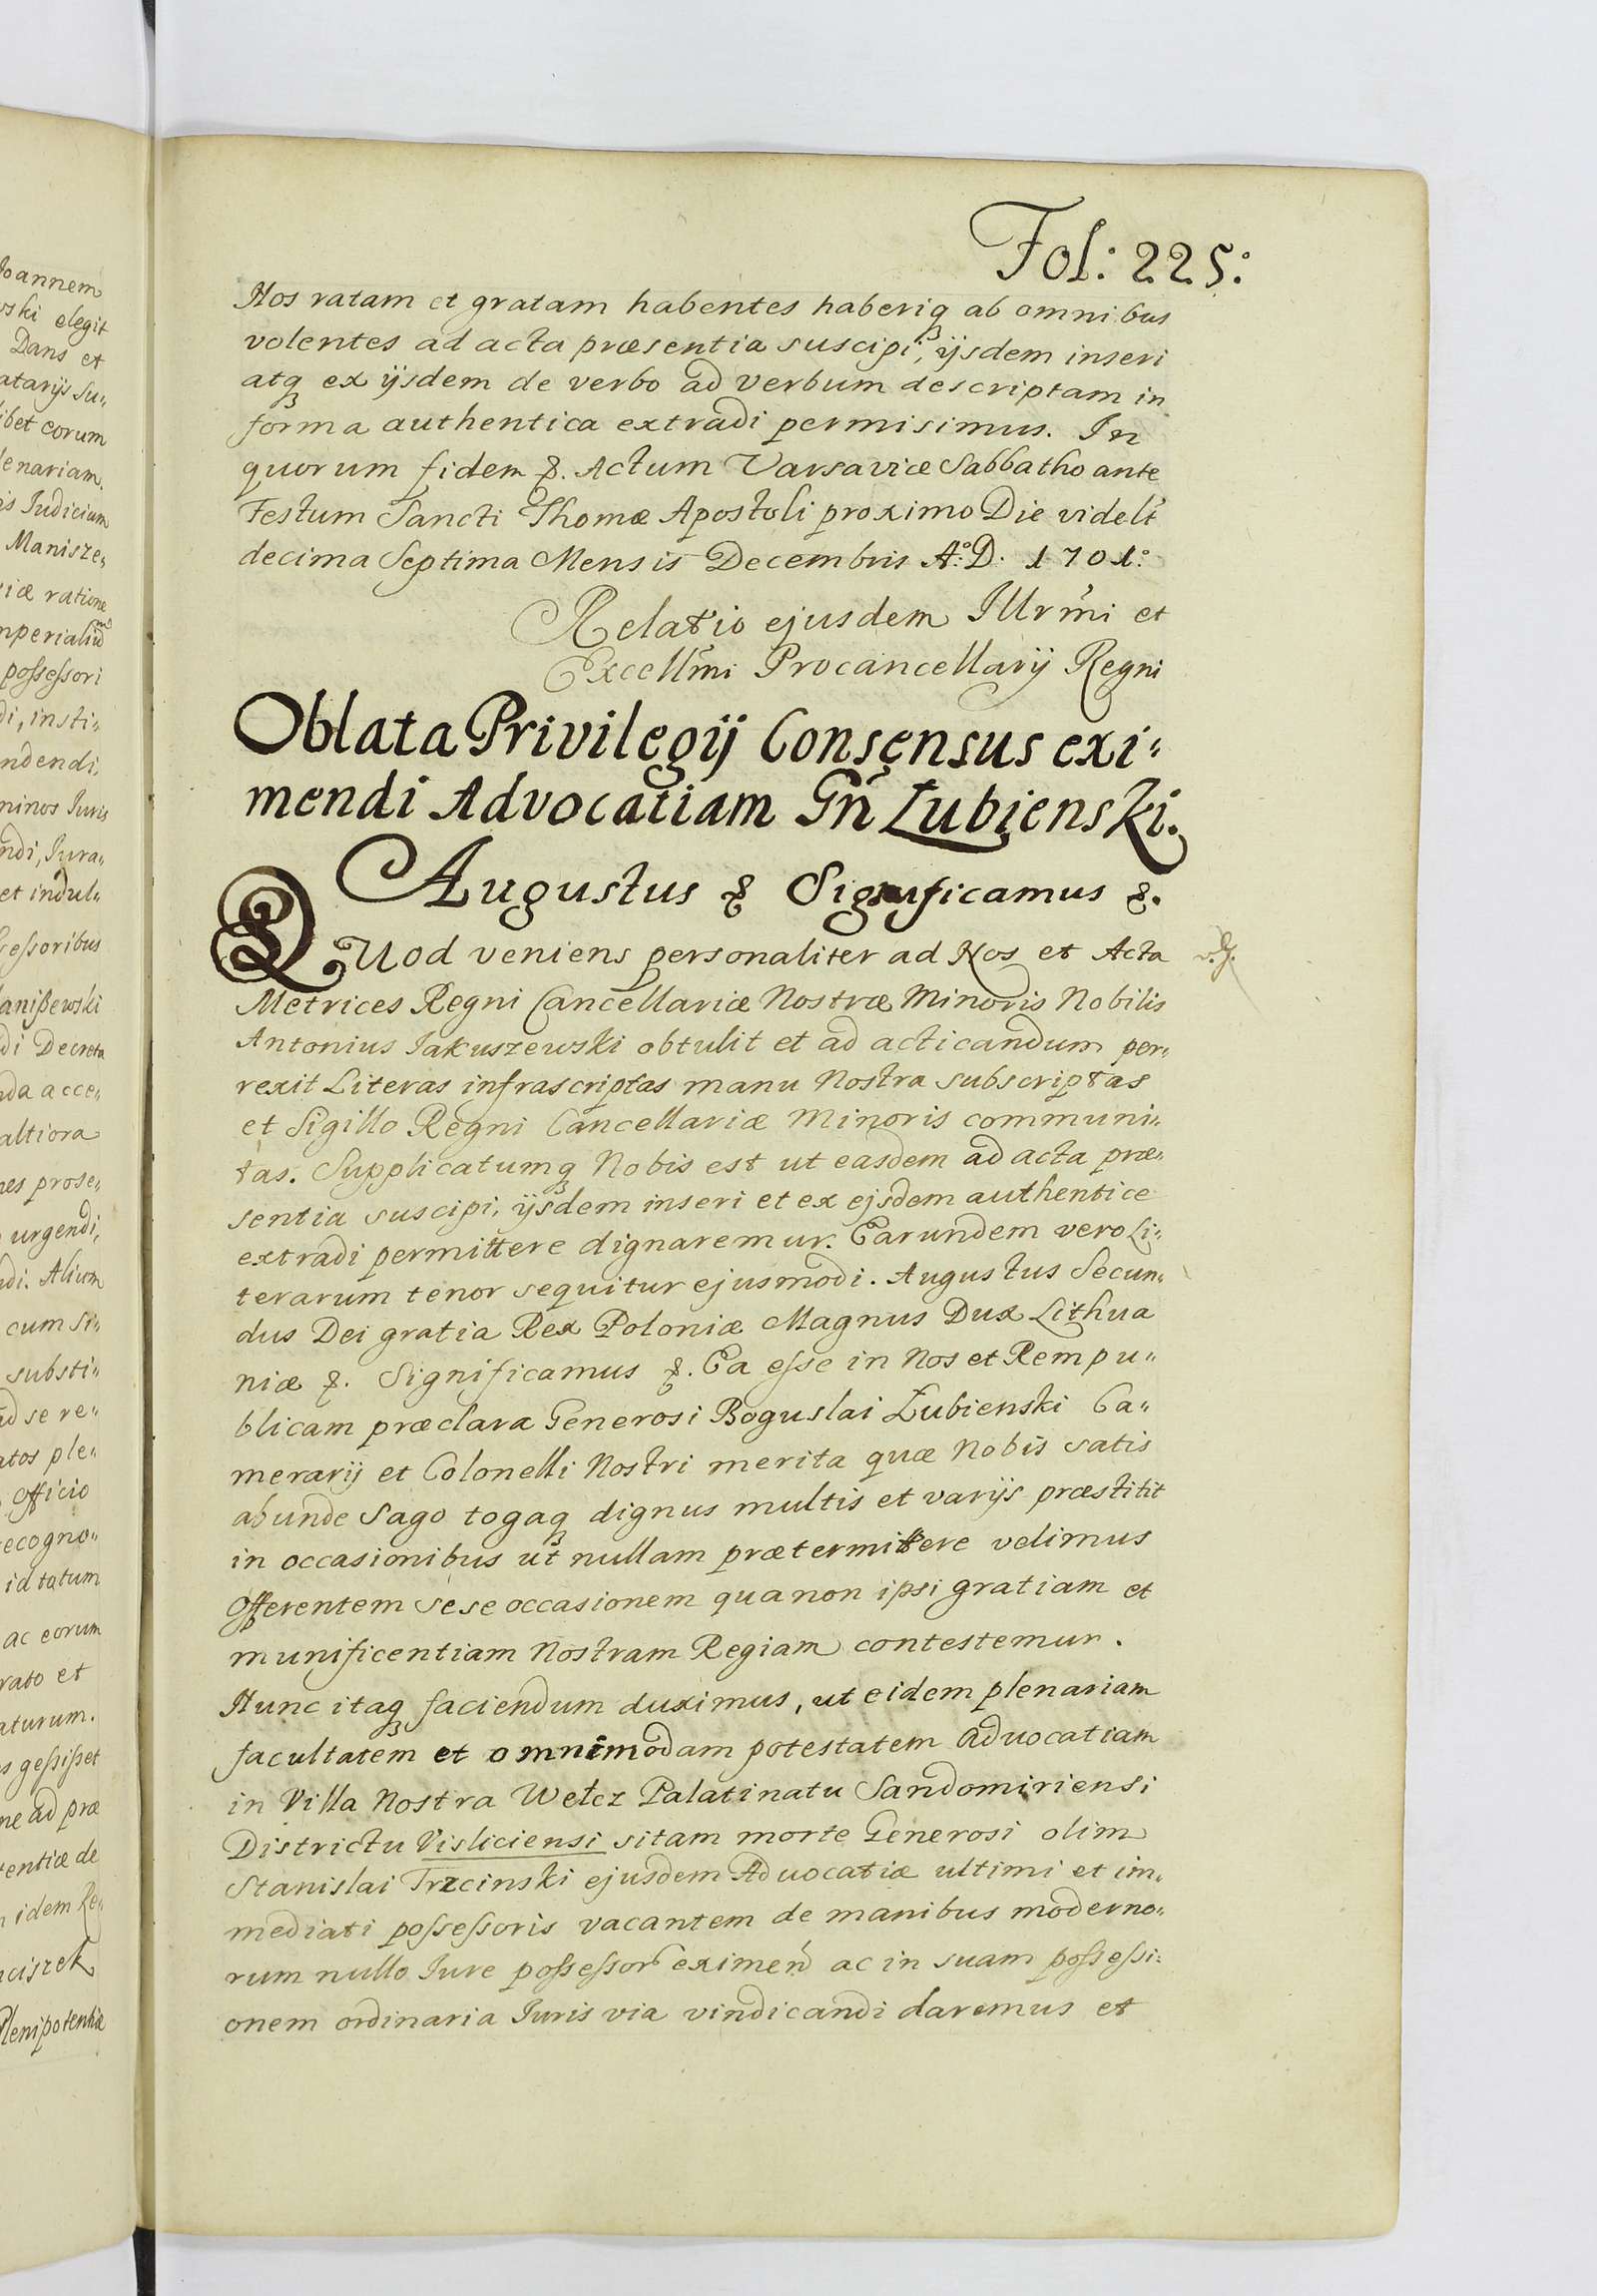 Fol: 225:
Nos ratam et gratam habentes haberiq₃ ab omnibus
volentes ad acta præsentia suscipi, ijsdem inseri
atq₃ ex ijsdem de verbo ad verbum descriptam in
forma authentica extradi permisimus. In
quorum fidem &. Actum Varsaviæ Sabbatho ante
Festum Sancti Thomæ Apostoli proximo Die videlt
decima Septima Mensis Decembris A.°D. 1701.°
Relatio ejusdem Illrmi et
Excellmi Procancellarij Regni
Oblata Privilegij Consensus exi=
mendi Advocatiam Gñ Łubienski.
Augustus & Significamus &.
QUod veniens personaliter ad Nos et Acta
Metrices Regni Cancellariæ Nostræ Minoris Nobilis
Antonius Jakuszewski obtulit et ad acticandum per=
rexit Literas infrascriptas manu Nostra subscriptas
et Sigillo Regni Cancellariæ Minoris communi=
tas. Supplicatumq₃ Nobis est ut easdem ad acta præ=
sentia suscipi, ijsdem inseri et ex ejsdem authentice
extradi permittere dignaremur. Earundem vero Li=
terarum tenor sequitur ejusmodi. Augustus Secun=
dus Dei gratia Rex Poloniæ Magnus Dux Lithua
niæ &. Significamus &. Ea esse in Nos et Rempu=
blicam præclara Generosi Boguslai Łubienski Ca=
merarij et Colonelli Nostri merita quæ Nobis satis
abunde Sago togaq₃ dignus multis et varijs præstitit
in occasionibus ut nullam prætermittere velimus
Offerentem sese occasionem qua non ipsi gratiam et
munificentiam Nostram Regiam contestemur.
Hunc itaq₃ faciendum duximus, ut eidem plenariam
facultatem et omnimodam potestatem Advocatiam
in Villa Nostra Wełcz Palatinatu Sandomiriensi
Districtu Visliciensi sitam morte Generosi olim
Stanislai Trzcinski ejusdem Advocatiæ ultimi et im=
mediati possessoris vacantem de manibus moderno=
rum nullo Jure possessor eximend ac in suam possessi=
onem ordinaria Juris via vindicandi daremus et